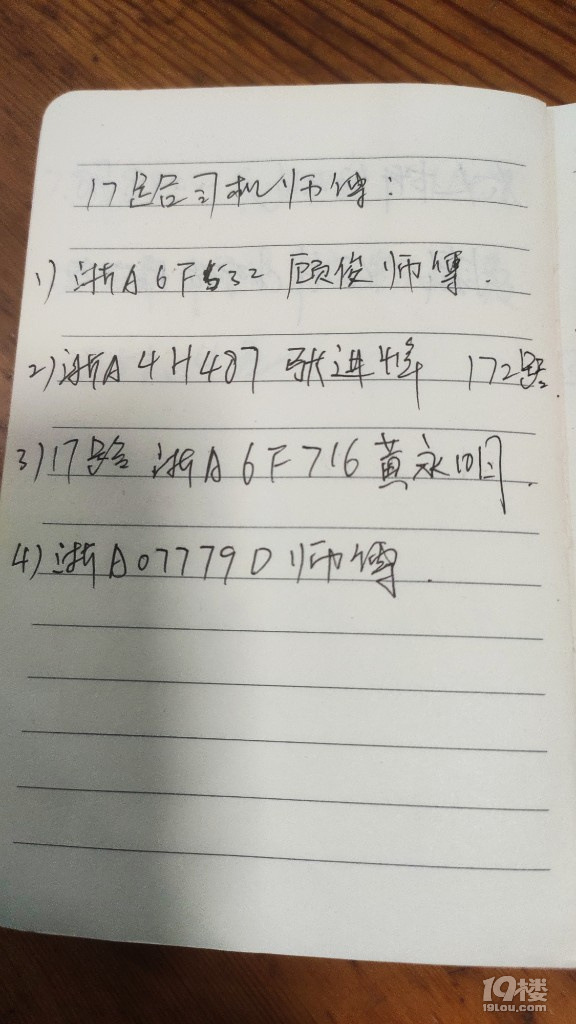 17路司机师傅:
1) 浙A6F532 顾俊师傅.
2) 浙A4H487 张进峰 172路.
3) 17路 浙A6F716 黄永明.
4) 浙A07779D 师傅.
19楼
19lou.com